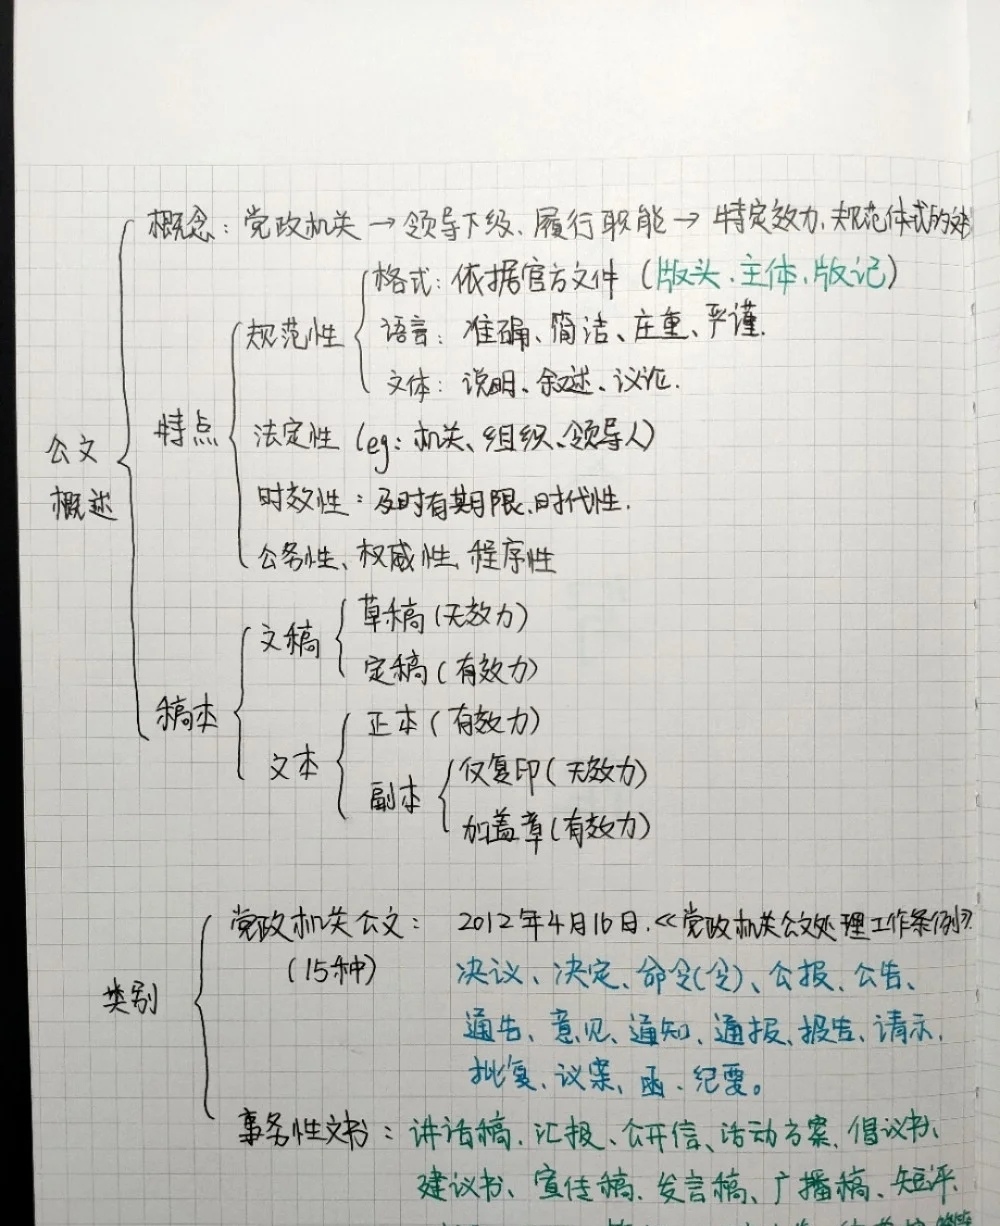 概念：党政机关→领导下级、履行职能→特定效力、规范体式的
格式：依据官方文件（版头、主体、版记）
规范性
语言：准确、简洁、庄重、严谨.
文体：说明、叙述、议论.
特点
法定性（eg：机关、组织、领导人）
公文
概述
时效性：及时有期限、时代性.
公务性、权威性、程序性
草稿（无效力）
文稿
定稿（有效力）
稿本
正本（有效力）
文本
仅复印（无效力）
副本
加盖章（有效力）
党政机关公文： 2012年4月16日.《党政机关公文处理工作条例》
（15种） 决议、决定、命令（令）、公报、公告、
类别
通告、意见、通知、通报、报告、请示、
批复、议案、函、纪要。
事务性文书：讲话稿、汇报、公开信、活动方案、倡议书、
建议书、宣传稿、发言稿、广播稿、短评、